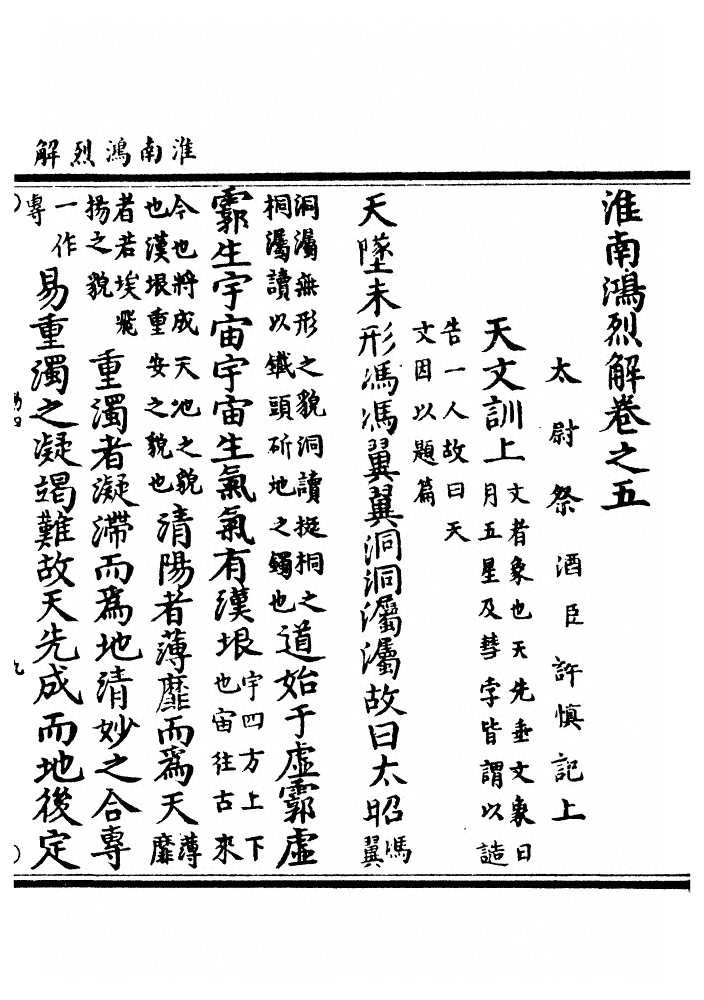 淮南鴻烈解
淮南鴻烈解卷之五
太尉祭酒臣許愼記上
天文訓上文者象也天先垂文象日月五星及彗孛皆謂以譴
告一人故曰天文因以題篇
天墜未形馮馮翼翼洞洞灟灟故曰太昭馮翼
洞灟無形之貌洞讀挺桐之桐灟讀以鐵頭斫地之鐲也道始于虛霩虛
霩生宇宙宇宙生氣氣有漢垠宇四方上下也宙往古來
今也將成天地之貌也漢垠重安之貌也清陽者薄靡而爲天薄靡
者若埃飛揚之貌重濁者凝滯而爲地清妙之合專
一作專易重濁之凝竭難故天先成而地後定
九